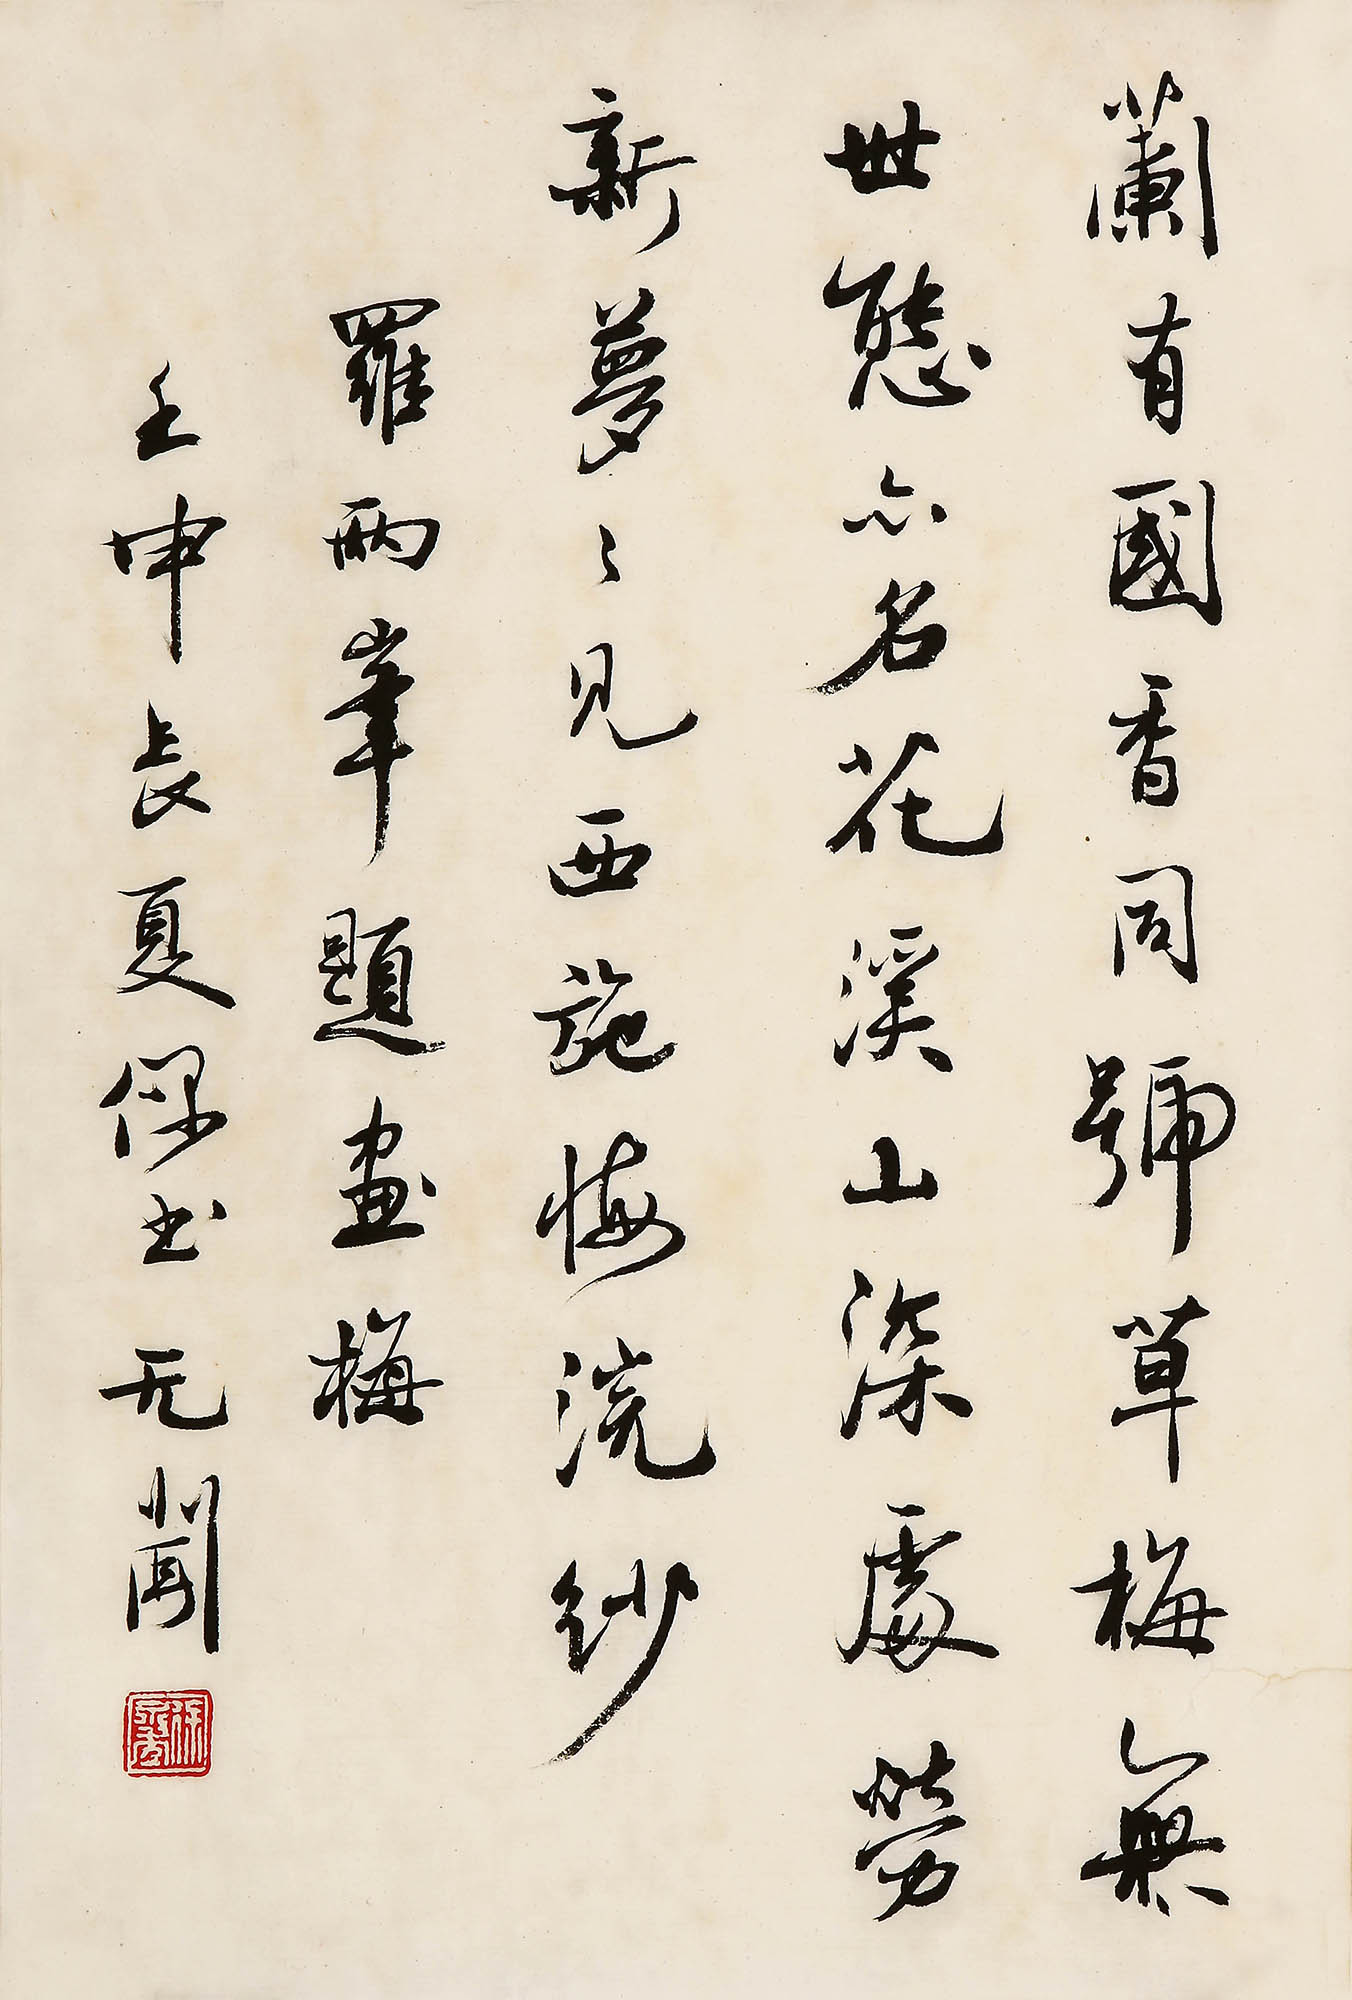 蘭有國香同號草梅無
世態亦名花溪山深處勞
新夢〻見西施悔浣紗
羅兩峯題畫梅
壬申長夏保書无聞